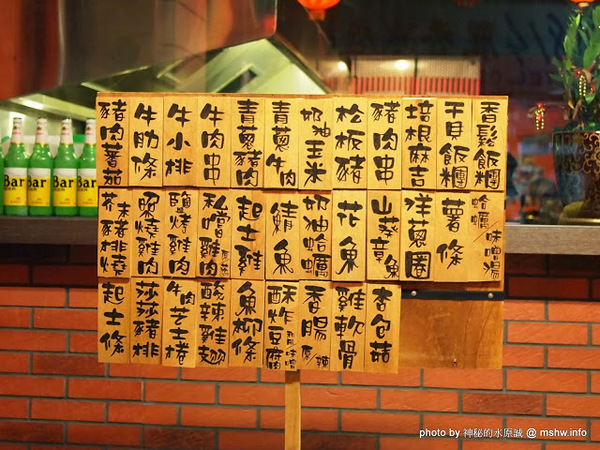 香鬆飯糰
干貝飯糰
培根麻吉
豬肉串
松板豬
奶油玉米
青蔥牛肉
青蔥豬肉
牛肉串
牛小排
牛肋條
豬肉蕃茄
蛤蠣/味噌湯
薯條
洋蔥圈
山葵章魚
花魚
奶油蛤蠣
鯖魚
起士雞
私嚐雞肉
鹽烤雞肉
照燒雞肉
芥末豬排燒
杏包菇
雞軟骨
香腸
酥炸豆腐
魚柳條
酸辣雞翅
牛肉芝士捲
莎莎豬排
起士條
Bar
Bar
Bar
Bar
photo by 神秘的水原誠 @ mshw.info